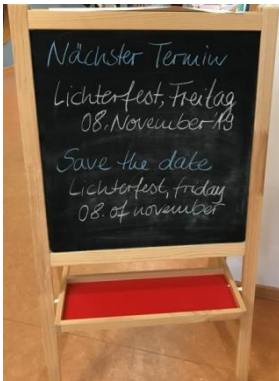 Nächster Termin
Lichterfest, Freitag
08. November '19
Save the date
Lichterfest, friday
08. of november